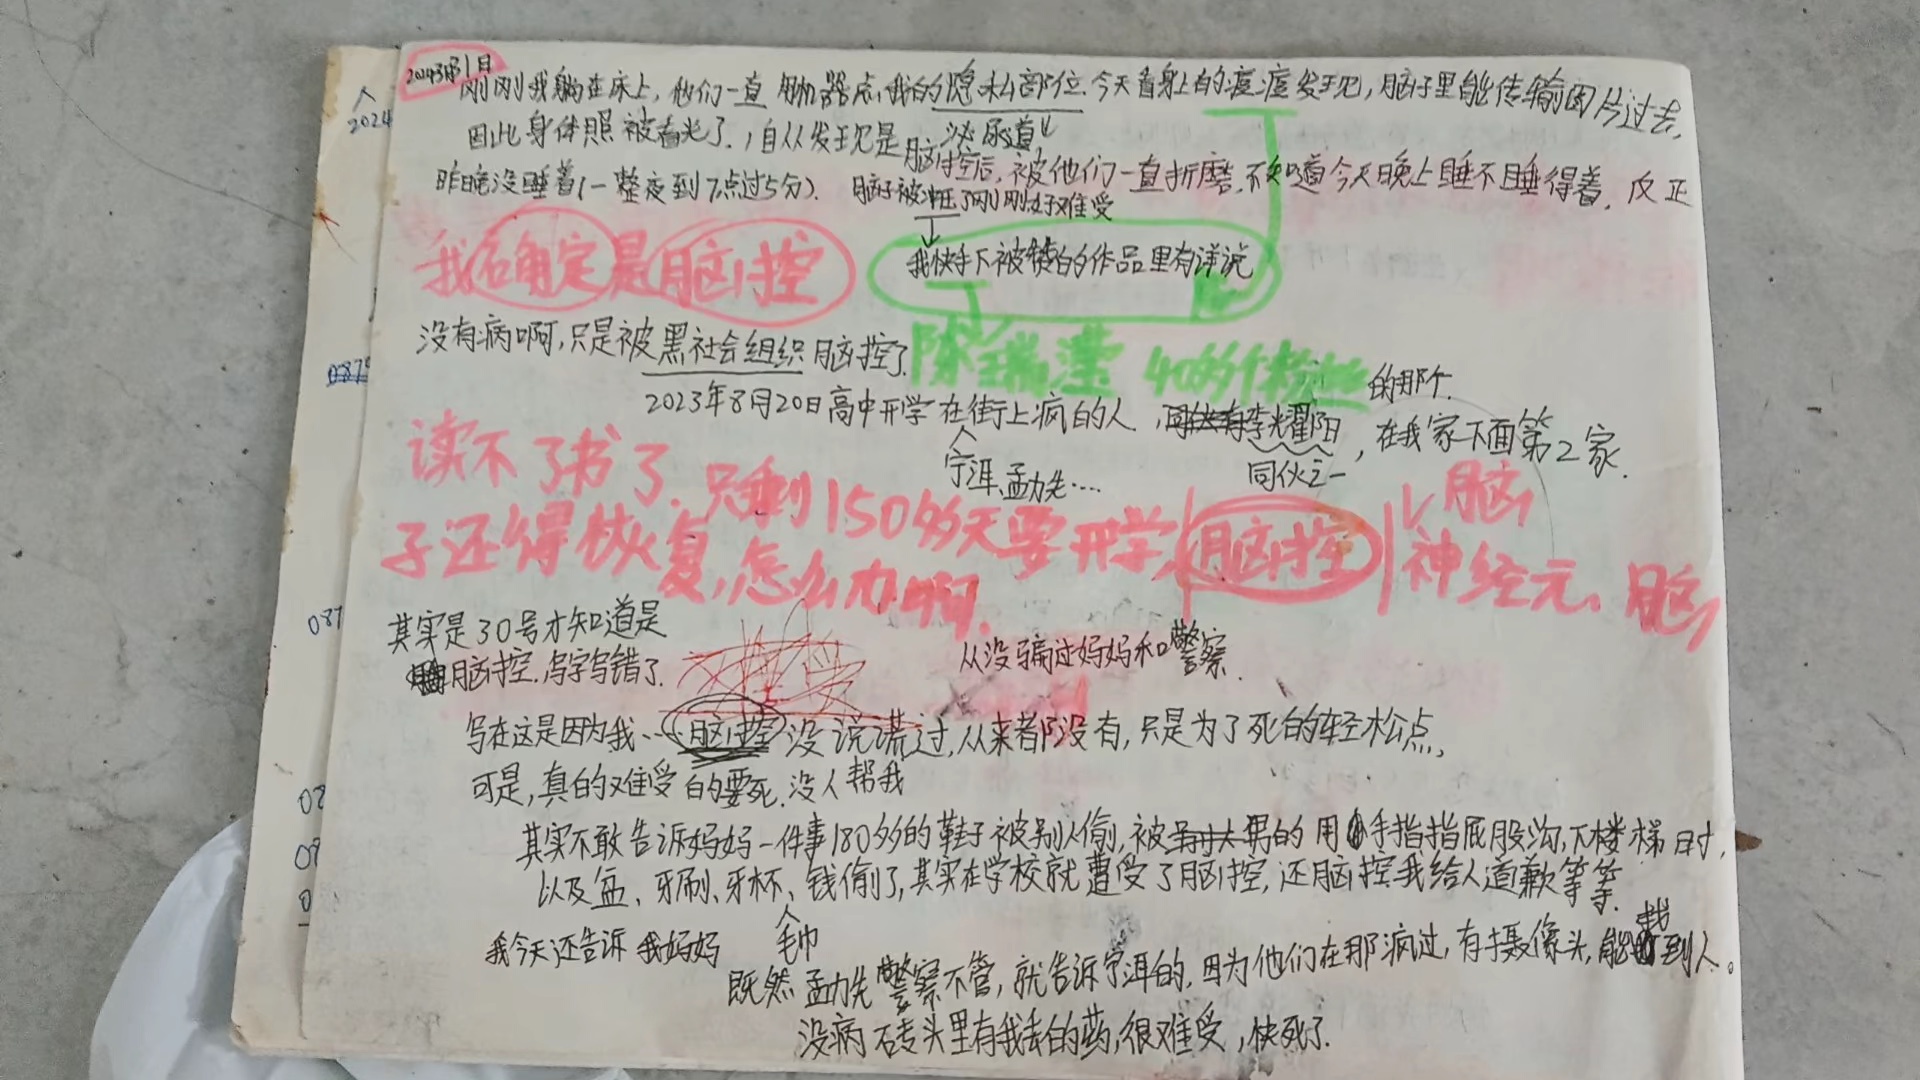 2024年3月31日
人
2024
刚刚我躺在床上,他们一直用机器点我的隐私部位.今天看身上的痘痘发现,脑子里能传输图片过去,
泌尿道
因此身体照被看光了.,自从发现是脑控后,被他们一直折磨.不知道今天晚上睡不睡得着.反正
昨晚没睡着(一整夜到7点过5分). 脑子被冲压了刚刚好难受
我确定是脑控
我快手下被赞的作品里有详说
没有病啊,只是被黑社会组织脑控了.
陈瑞滢 40多个粉丝 的那个.
2023年8月20日高中开学在街上疯的人,李耀阳,在我家下面第2家.
宁洱、孟力先…
同伙之一
读不了书了.只剩150多天要开学,脑控 脑
子还得恢复,怎么办啊. 神经元、脑
其实是30号才知道是
脑控.写字写错了.
从没骗过妈妈和警察.
写在这是因为我…脑控没说谎过,从来都没有,只是为了死的轻松点,
可是,真的难受的要死.没人帮我
其实不敢告诉妈妈一件事180多的鞋子被别人偷,被男的用手指指屁股沟,下楼梯时,
以及盆、牙刷、牙杯、钱偷了,其实在学校就遭受了脑控,还脑控我给人道歉等等.
毛巾
我今天还告诉我妈妈
既然孟力先警察不管,就告诉宁洱的,因为他们在那疯过,有摄像头,能找到人。
没病 砖头里有我丢的药,很难受,快死了.